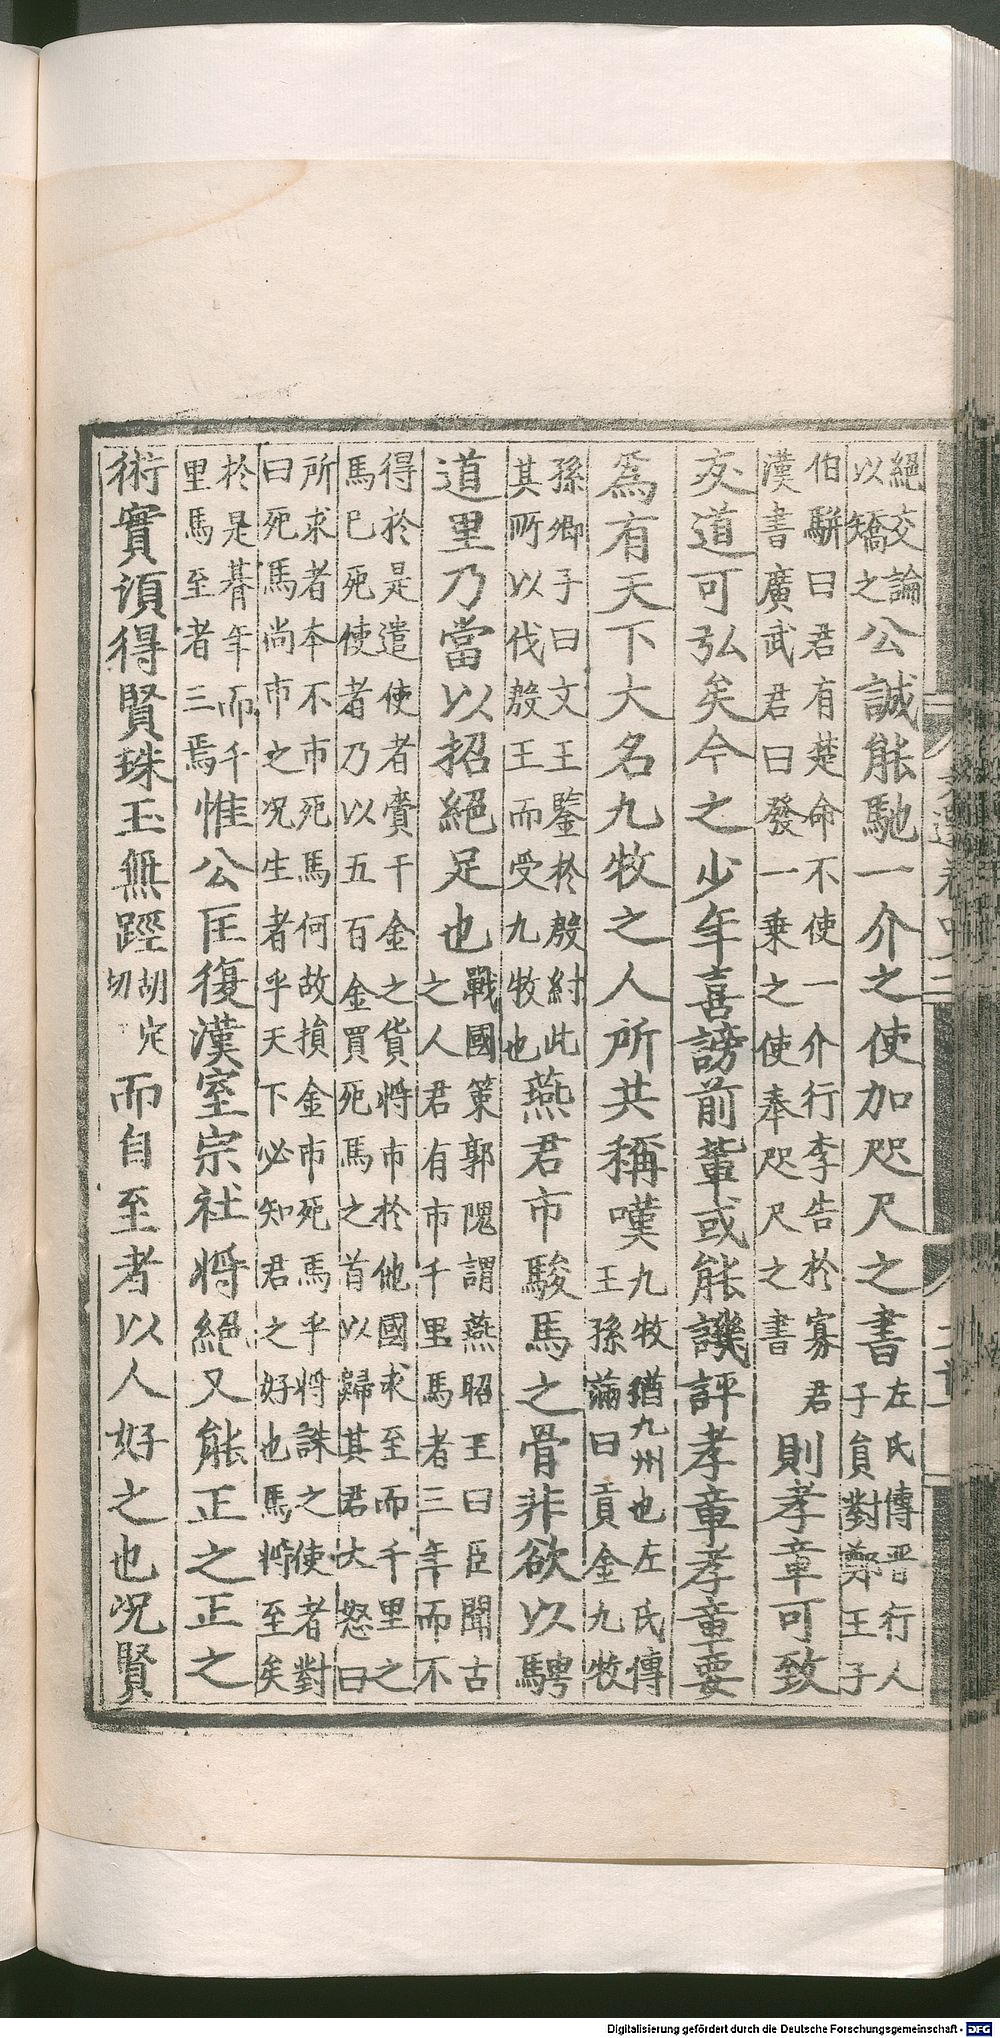 絕交論
以矯之公誠能馳一介之使加咫尺之書左氏傳晉行人
子員對鄭王子
伯駢曰君有楚命不使一介行李告於寡君
漢書廣武君曰發一乘之使奉咫尺之書則孝章可致
友道可弘矣今之少年喜謗前輩或能譏評孝章孝章要
爲有天下大名九牧之人所共稱嘆九牧猶九州也左氏傳
王孫滿曰貢金九牧
孫卿子曰文王鑒於殷紂此
其所以伐殷王而受九牧也燕君市駿馬之骨非欲以騁
道里乃當以招絕足也戰國策郭隗謂燕昭王曰臣聞古
之人君有市千里馬者三年而不
得於是遣使者賷千金之貨將市於他國求至而千里之
馬已死使者乃以五百金買死馬之首以歸其君大怒曰
所求者本不市死馬何故損金市死馬乎將誅之使者對
曰死馬尚市之况生者乎天下必知君之好也馬將至矣
於是朞年而千
里馬至者三焉惟公匡復漢室宗社將絕又能正之正之
術實須得賢珠玉無踁胡定
切而自至者以人好之也况賢
Digitalisierung gefördert durch die Deutsche Forschungsgemeinschaft - DFG